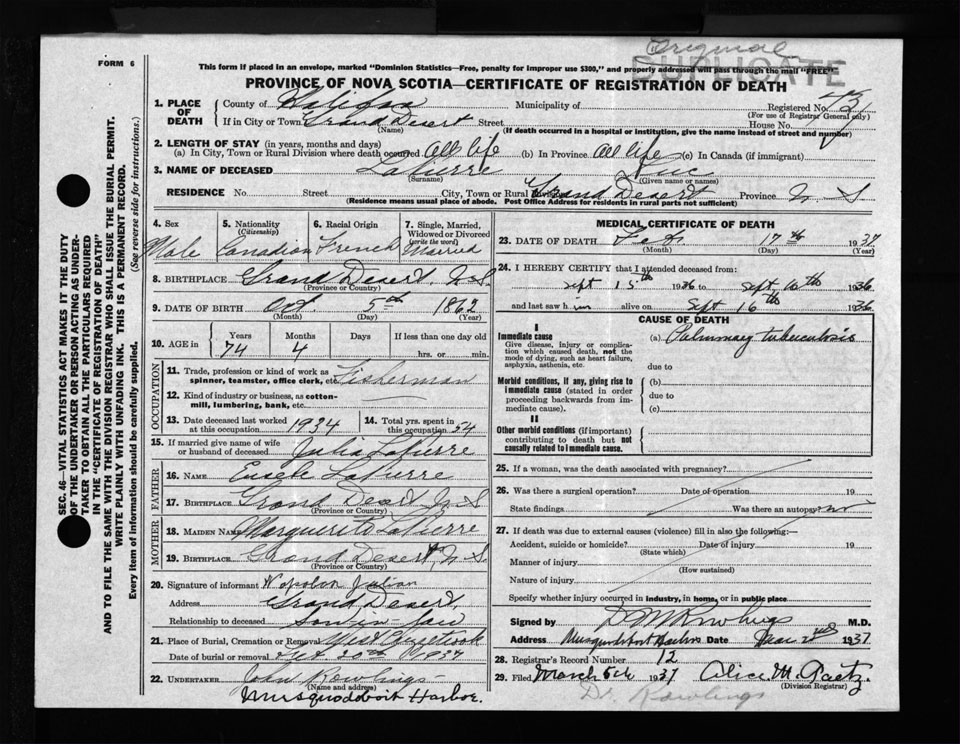 Original
DUPLICATE
FORM 6
This form if placed in an envelope, marked "Dominion Statistics—Free, penalty for improper use $300," and properly addressed will pass through the mail "FREE"
PROVINCE OF NOVA SCOTIA—CERTIFICATE OF REGISTRATION OF DEATH
SEC. 46—VITAL STATISTICS ACT MAKES IT THE DUTY
OF THE UNDERTAKER OR PERSON ACTING AS UNDER-
TAKER TO OBTAIN ALL THE PARTICULARS REQUIRED
IN THE "CERTIFICATE OF REGISTRATION OF DEATH"
AND TO FILE THE SAME WITH THE DIVISION REGISTRAR WHO SHALL ISSUE THE BURIAL PERMIT.
WRITE PLAINLY WITH UNFADING INK. THIS IS A PERMANENT RECORD.
Every item of information should be carefully supplied. (See reverse side for instructions.)
1. PLACE OF DEATH
County of Halifax Municipality of Registered No.
(For use of Registrar General only)
If in City or Town Grand Desert Street House No.
(Name) (If death occurred in a hospital or institution, give the name instead of street and number)
2. LENGTH OF STAY (in years, months and days)
(a) In City, Town or Rural Division where death occurred All life (b) In Province All life (c) In Canada (if immigrant)
3. NAME OF DECEASED Lapierre
(Surname) (Given name or names)
RESIDENCE No. Street City, Town or Rural Division Grand Desert Province N S
(Residence means usual place of abode. Post Office Address for residents in rural parts not sufficient)
4. Sex Male
5. Nationality (Citizenship) Canadian
6. Racial Origin French
7. Single, Married, Widowed or Divorced (write the word) Married
8. BIRTHPLACE Grand Desert, N.S.
(Province or Country)
9. DATE OF BIRTH Oct. 5th 1862
(Month) (Day) (Year)
10. AGE in Years 74 Months 4 Days If less than one day old hrs. or min.
OCCUPATION
11. Trade, profession or kind of work as spinner, teamster, office clerk, etc. Fisherman
12. Kind of industry or business, as cotton-mill, lumbering, bank, etc.
13. Date deceased last worked at this occupation 1934
14. Total yrs. spent in this occupation 54
15. If married give name of wife or husband of deceased Julia Lapierre
FATHER
16. NAME Eusebe Lapierre
17. BIRTHPLACE Grand Desert N S
(Province or Country)
MOTHER
18. MAIDEN NAME Marguerite Lapierre
19. BIRTHPLACE Grand Desert N S
(Province or Country)
20. Signature of informant Napolon Julian
Address Grand Desert
Relationship to deceased Son-in-law
21. Place of Burial, Cremation or Removal West Chezzetcook
Date of burial or removal 20th 1937
22. UNDERTAKER John Rowlings
(Name and address)
Musquodoboit Harbor.
MEDICAL CERTIFICATE OF DEATH
23. DATE OF DEATH Feb 17th 1937
(Month) (Day) (Year)
24. I HEREBY CERTIFY that I attended deceased from:
Sept 15th 1936 to Sept 16th 1936
and last saw him alive on Sept 16th 1936
CAUSE OF DEATH
I
Immediate cause
Give disease, injury or complication which caused death, not the mode of dying, such as heart failure, asphyxia, asthenia, etc.
(a) Pulmonary tuberculosis
due to
Morbid conditions, if any, giving rise to immediate cause (stated in order proceeding backwards from immediate cause).
(b)
due to
(c)
II
Other morbid conditions (if important) contributing to death but not causally related to immediate cause.
25. If a woman, was the death associated with pregnancy?
26. Was there a surgical operation? Date of operation 19
State findings Was there an autopsy? no
27. If death was due to external causes (violence) fill in also the following:—
Accident, suicide or homicide? Date of injury 19
(State which)
Manner of injury
(How sustained)
Nature of injury
Specify whether injury occurred in industry, in home, or in public place
Signed by D M Rowlings M.D.
Address Musquodoboit Harbor Date Mar 2nd 1937
28. Registrar's Record Number 12
29. Filed March 5th 1937 Alice M. Paetz
(Division Registrar)
Dr. Rowlings